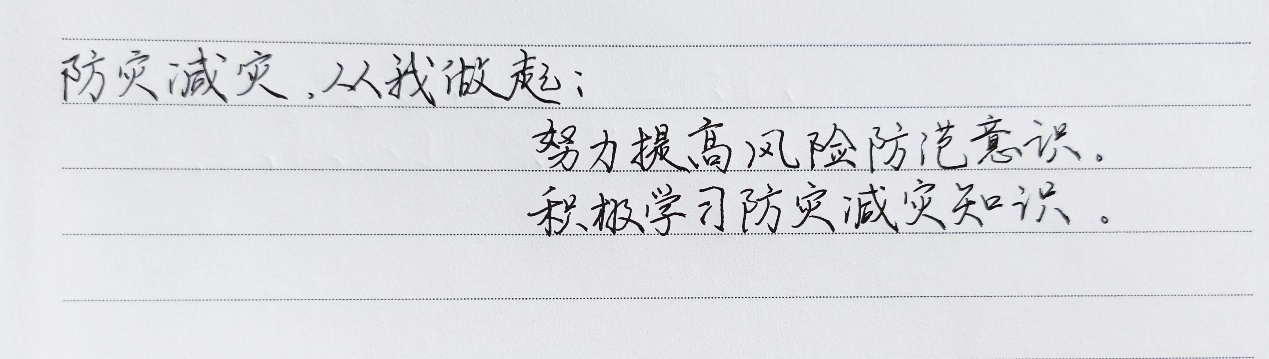 防灾减灾，从我做起；
努力提高风险防范意识。
积极学习防灾减灾知识。